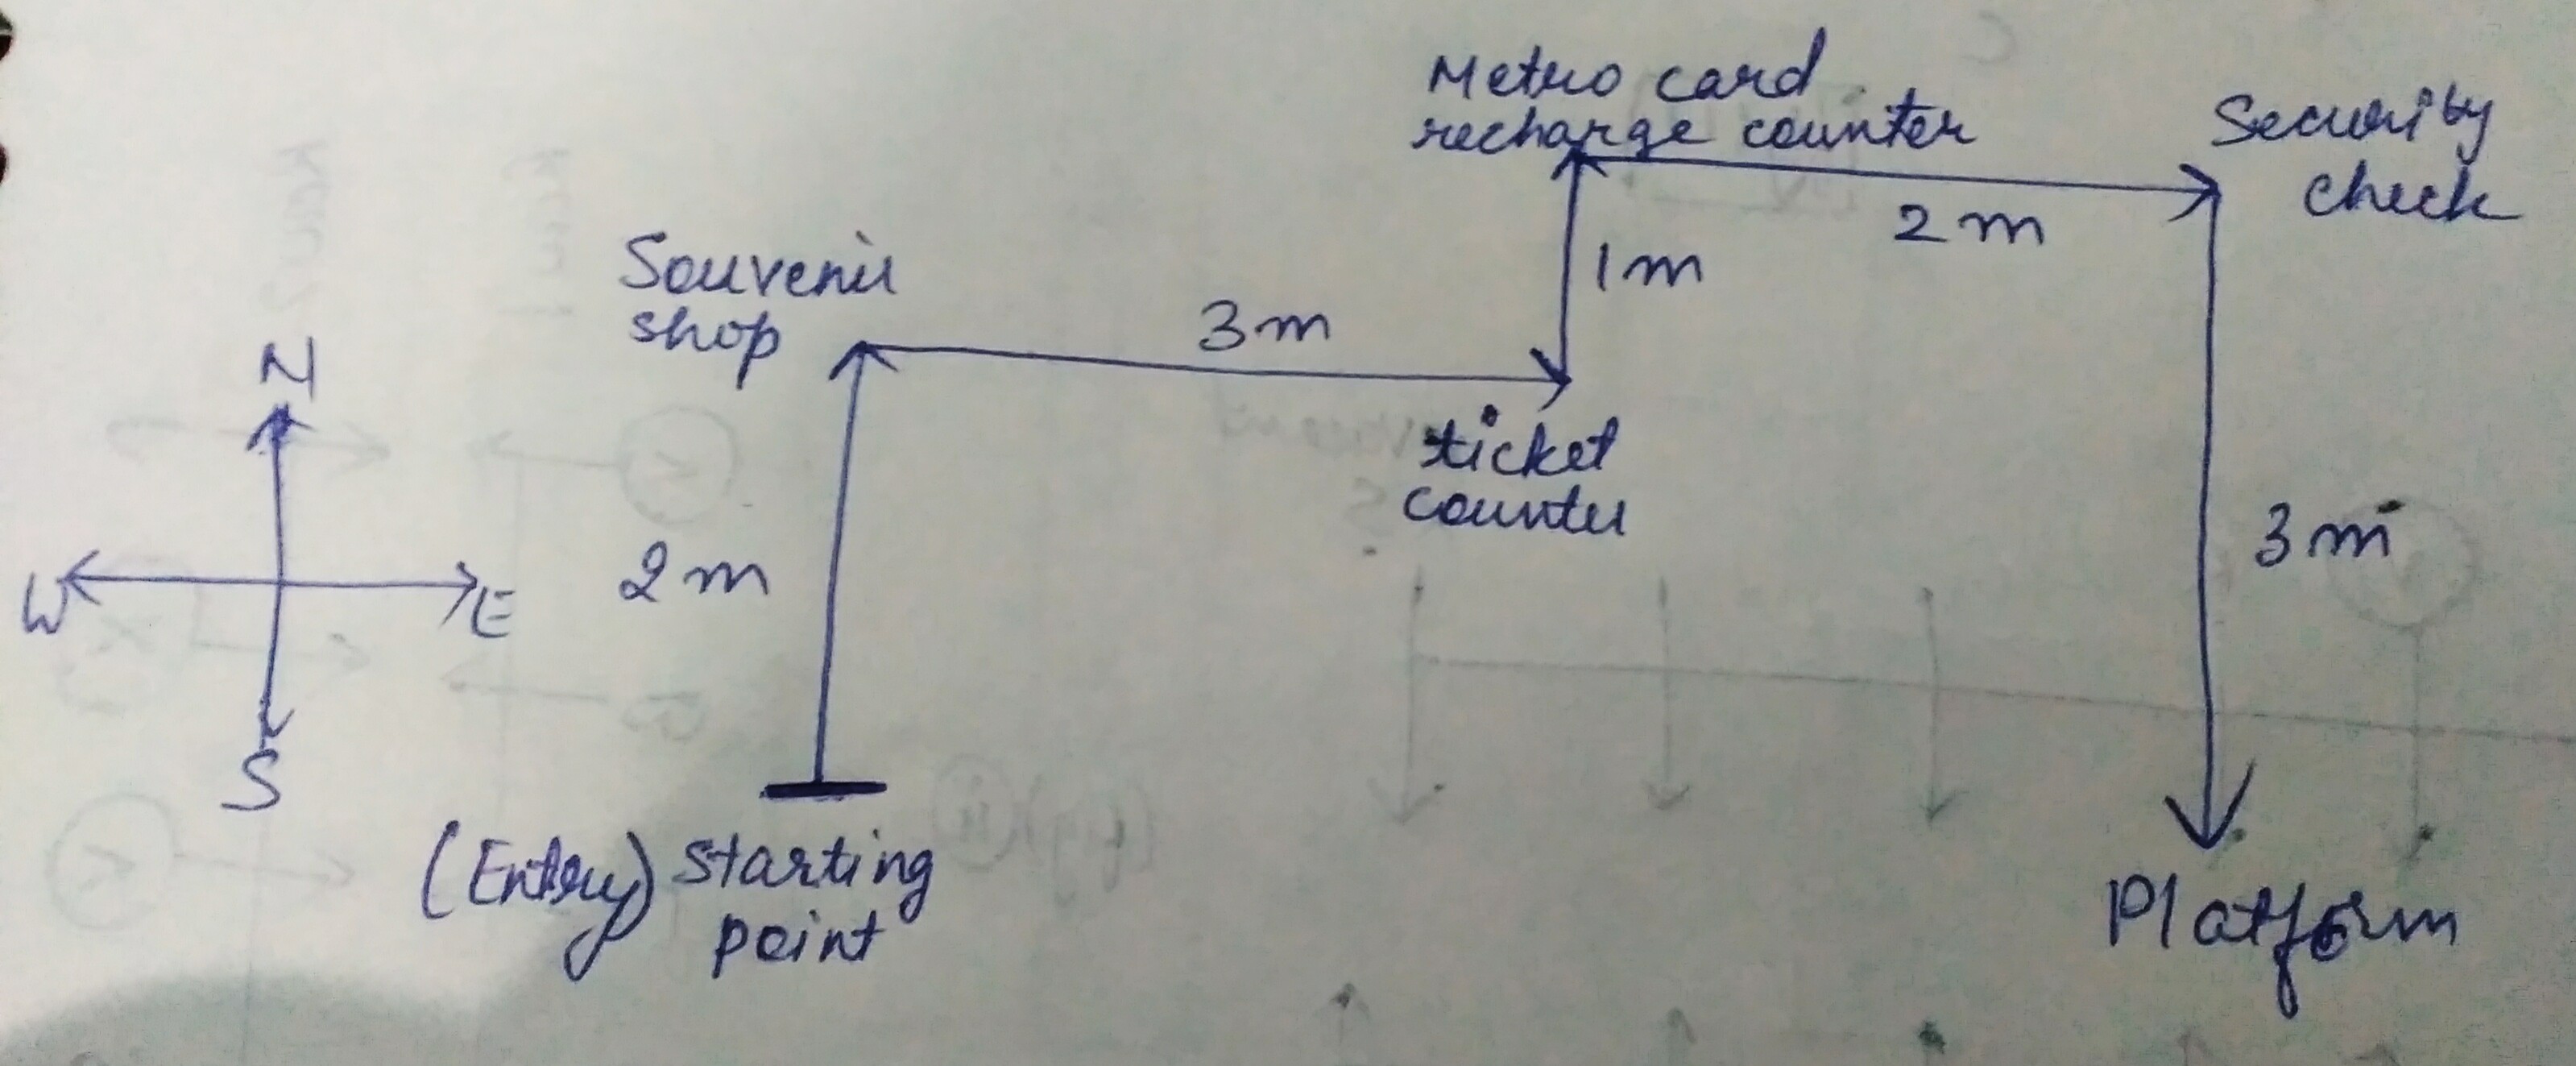 Metro card
recharge counter
Security
check
2 m
1m
Souvenir
shop
3m
N
ticket
counter
W
E
2 m
3 m
S
(Entry) Starting
point
Platform